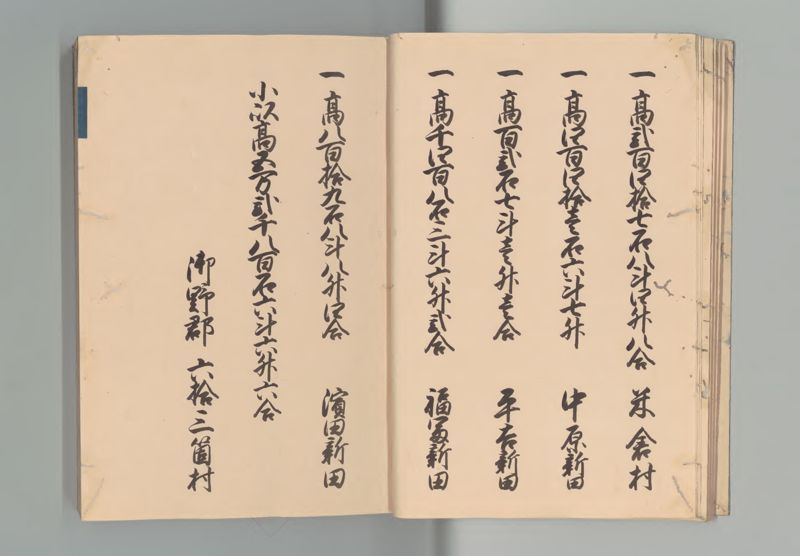 一 高弐百四拾七石八斗四升八合 米倉村
一 高四百四拾壱石六斗七升 中原新田
一 高百弐石七斗壱升壱合 平吉新田
一 高千四百八石三斗六升弐合 福富新田
一 高八百拾九石八斗八升四合 濱田新田
小以高五万弐千八百石六斗六升六合
御野郡 六拾三箇村